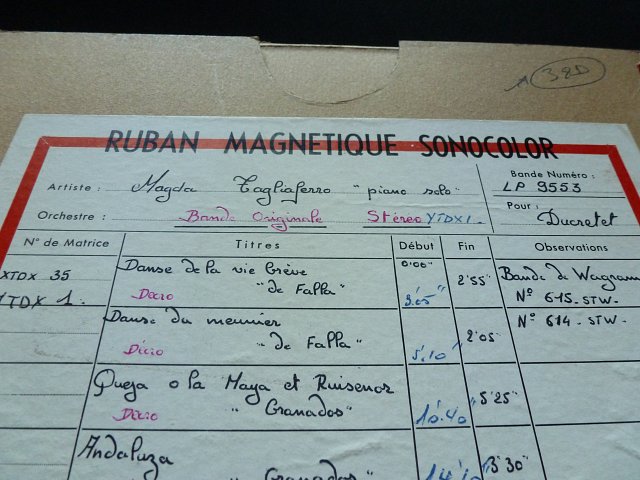 380
RUBAN MAGNETIQUE SONOCOLOR
Artiste : Magda Tagliaferro "piano solo"
Bande Numéro :
LP 9553
Orchestre : Bande Originale Stéreo YTDX1.
Pour : Ducretet
N° de Matrice Titres Début Fin Observations
XTDX 35 Danse de la vie brève 0'00" 2'55" Bande de Wagram
YTDX 1. Décio "de Falla" 3'05" N° 615-STW-
Danse du meunier 2'05" N° 614-STW-
Décio "de Falla" 5'10"
Queja o la Maya et Ruisenor 5'25"
Décio "Granados" 10'40
Andaluza 3'30"
"Granados"